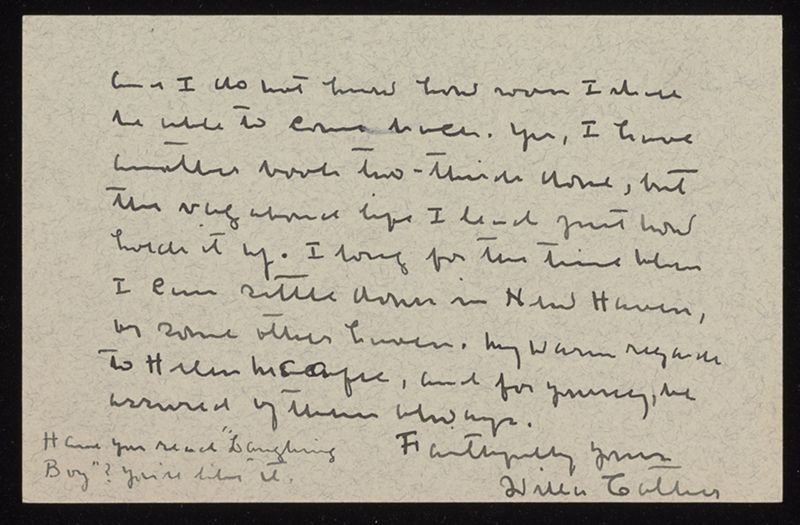 and I do not know how soon I shall
be able to come back. Yes, I have
another book two-thirds done, but
the vagabond life I lead just now
holds it up. I long for the time when
I can settle down in New Haven,
or some other haven. My warm regards
to Helen McAfee, and for yourself, be
assured of them always.
Faithfully yours
Willa Cather
Have you read "Laughing
Boy"? You'll like it.